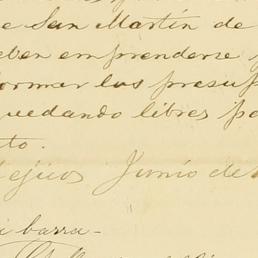 e San Martín de
eben emprenderse
ormar los presup
uedando libres po
to.
Junio de
i barra-